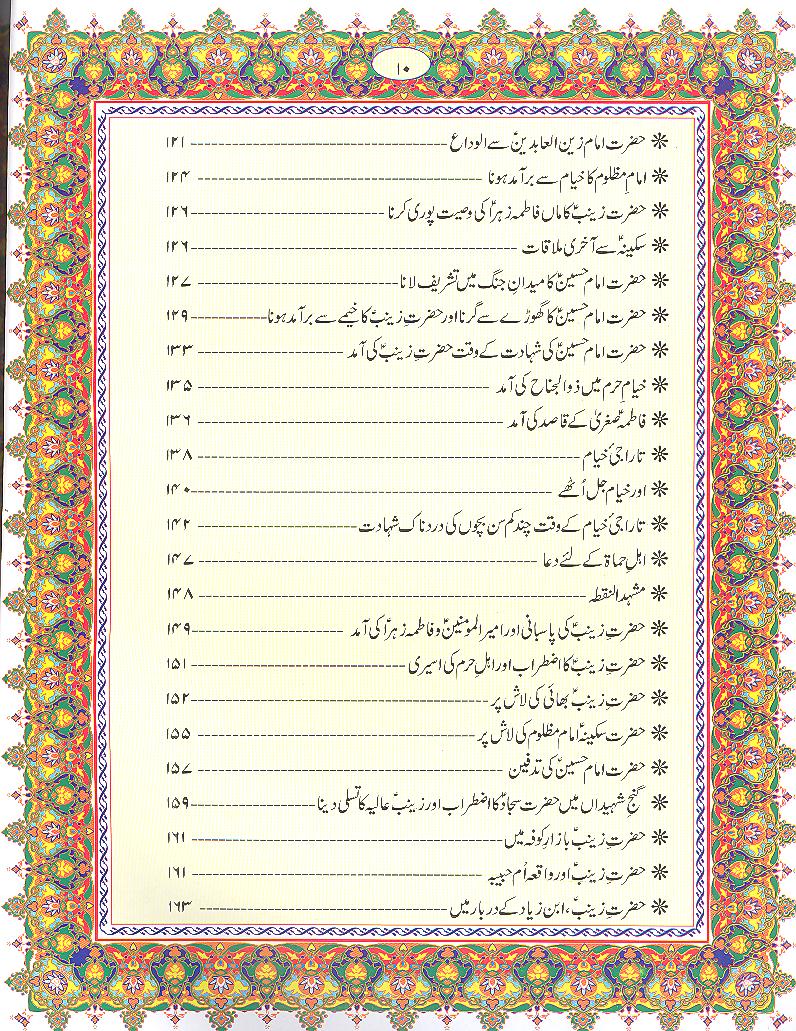 ۱۰
❋ حضرت امام زین العابدینؑ سے الوداع ------ ۱۲۱
❋ امامِ مظلوم کا خیام سے برآمد ہونا ------ ۱۲۴
❋ حضرت زینبؑ کا ماں فاطمہ زہراؑ کی وصیت پوری کرنا ------ ۱۲۶
❋ سکینہؑ سے آخری ملاقات ------ ۱۲۶
❋ حضرت امام حسینؑ کا میدانِ جنگ میں تشریف لانا ------ ۱۲۷
❋ حضرت امام حسینؑ کا گھوڑے سے گرنا اور حضرتِ زینبؑ کا خیمے سے برآمد ہونا ------ ۱۲۹
❋ حضرت امام حسینؑ کی شہادت کے وقت حضرتِ زینبؑ کی آمد ------ ۱۳۳
❋ خیامِ حرم میں ذوالجناح کی آمد ------ ۱۳۵
❋ فاطمہؑ صغریٰ کے قاصد کی آمد ------ ۱۳۶
❋ تاراجیٔ خیام ------ ۱۳۸
❋ اور خیام جل اُٹھے ------ ۱۴۰
❋ تاراجیٔ خیام کے وقت چند کم سن بچوں کی دردناک شہادت ------ ۱۴۲
❋ اہلِ حماۃ کے لئے دعا ------ ۱۴۷
❋ مشہد النقطہ ------ ۱۴۸
❋ حضرتِ زینبؑ کی پاسبانی اور امیرالمومنینؑ و فاطمہ زہراؑ کی آمد ------ ۱۴۹
❋ حضرتِ زینبؑ کا اضطراب اور اہلِ حرم کی اسیری ------ ۱۵۱
❋ حضرتِ زینبؑ بھائی کی لاش پر ------ ۱۵۲
❋ حضرت سکینہؑ امام مظلوم کی لاش پر ------ ۱۵۵
❋ حضرت امام حسینؑ کی تدفین ------ ۱۵۷
❋ گنجِ شہیداں میں حضرت سجادؑ کا اضطراب اور زینبؑ عالیہ کا تسلی دینا ------ ۱۵۹
❋ حضرتِ زینبؑ بازارِ کوفہ میں ------ ۱۶۱
❋ حضرتِ زینبؑ اور واقعہ اُم حبیبہ ------ ۱۶۱
❋ حضرتِ زینبؑ، ابن زیاد کے دربار میں ------ ۱۶۳